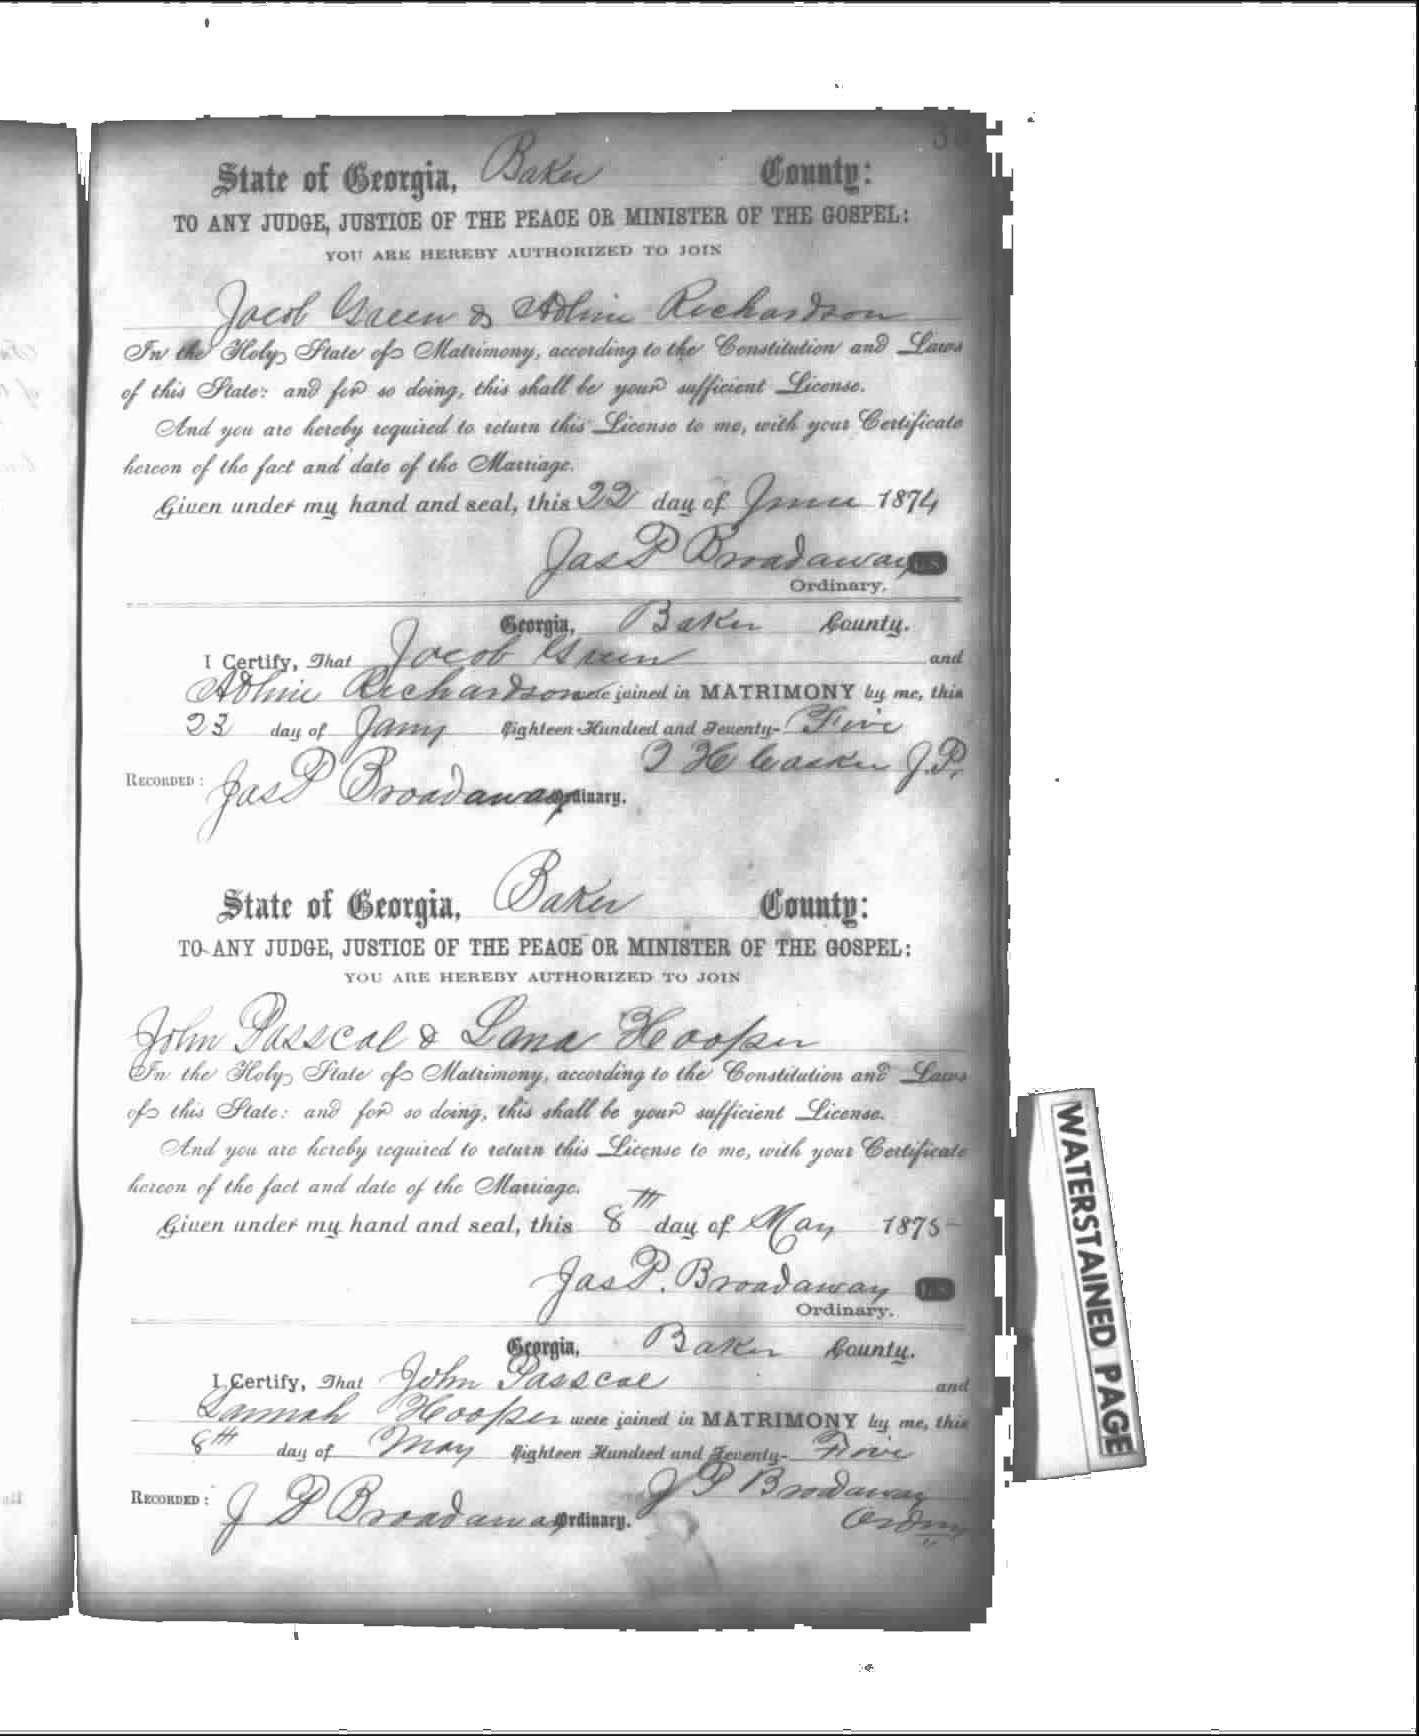 State of Georgia, Baker County:
TO ANY JUDGE, JUSTICE OF THE PEACE OR MINISTER OF THE GOSPEL:
YOU ARE HEREBY AUTHORIZED TO JOIN
Jacob Green & Adline Richardson
In the Holy State of Matrimony, according to the Constitution and Laws
of this State: and for so doing, this shall be your sufficient License.
And you are hereby required to return this License to me, with your Certificate
hereon of the fact and date of the Marriage.
Given under my hand and seal, this 22 day of June 1874
Jas P Broadaway L.S.
Ordinary.
Georgia, Baker County.
I Certify, That Jacob Green and
Adline Richardson were joined in MATRIMONY by me, this
23 day of Jany Eighteen Hundred and Seventy- Five
J.P.
RECORDED: Jas P Broadaway Ordinary.
State of Georgia, Baker County:
TO ANY JUDGE, JUSTICE OF THE PEACE OR MINISTER OF THE GOSPEL:
YOU ARE HEREBY AUTHORIZED TO JOIN
John Passcal & Lana Hooper
In the Holy State of Matrimony, according to the Constitution and Laws
of this State: and for so doing, this shall be your sufficient License.
And you are hereby required to return this License to me, with your Certificate
hereon of the fact and date of the Marriage.
Given under my hand and seal, this 8th day of May 1875
Jas P. Broadaway L.S.
Ordinary.
Georgia, Baker County.
I Certify, That John Passcal and
Lannah Hooper were joined in MATRIMONY by me, this
8th day of May Eighteen Hundred and Seventy- Five
J P Brodaway
RECORDED: J P Broadaway Ordinary. Ordny
WATERSTAINED PAGE